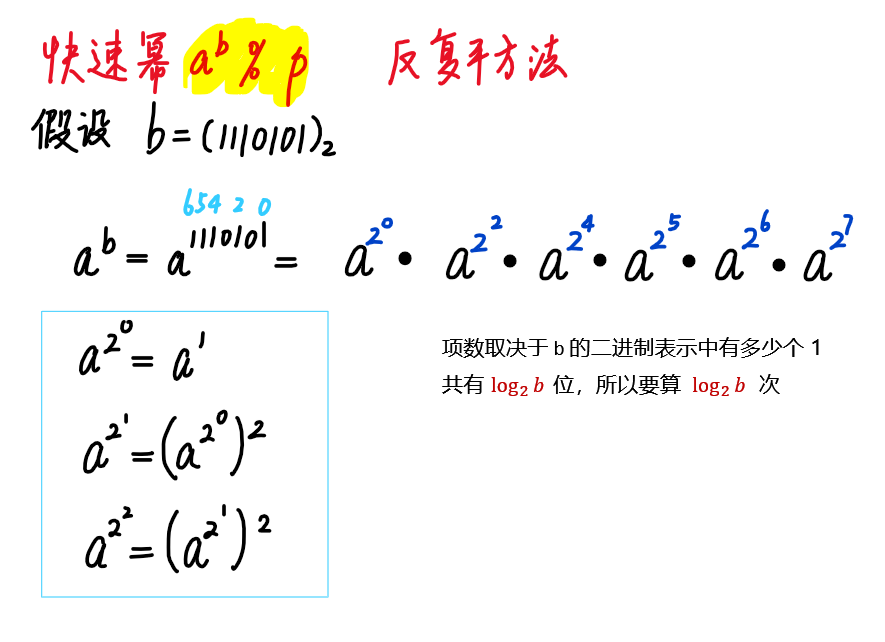 快速幂 a^b % p 反复平方法
假设 b=(1110101)₂
654 2 0
a^b = a^1110101 = a^2^0 · a^2^2 · a^2^4 · a^2^5 · a^2^6 · a^2^7
a^2^0 = a^1
a^2^1 = (a^2^0)^2
a^2^2 = (a^2^1)^2
项数取决于 b 的二进制表示中有多少个 1
共有 log₂ b 位，所以要算 log₂ b 次